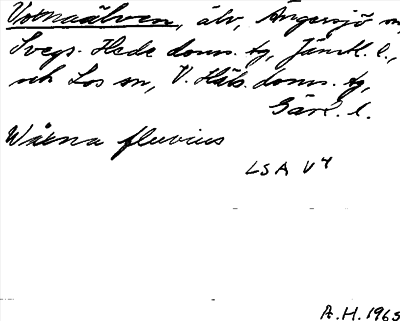 Voxnaälven, älv, Ängersjö sn,
Svegs-Hede doms. tg, Jämtl. l.,
och Los sn, V. Häls. doms. tg,
Gävl. l.
Wåxna fluvius
LSA V4
A.H. 1965